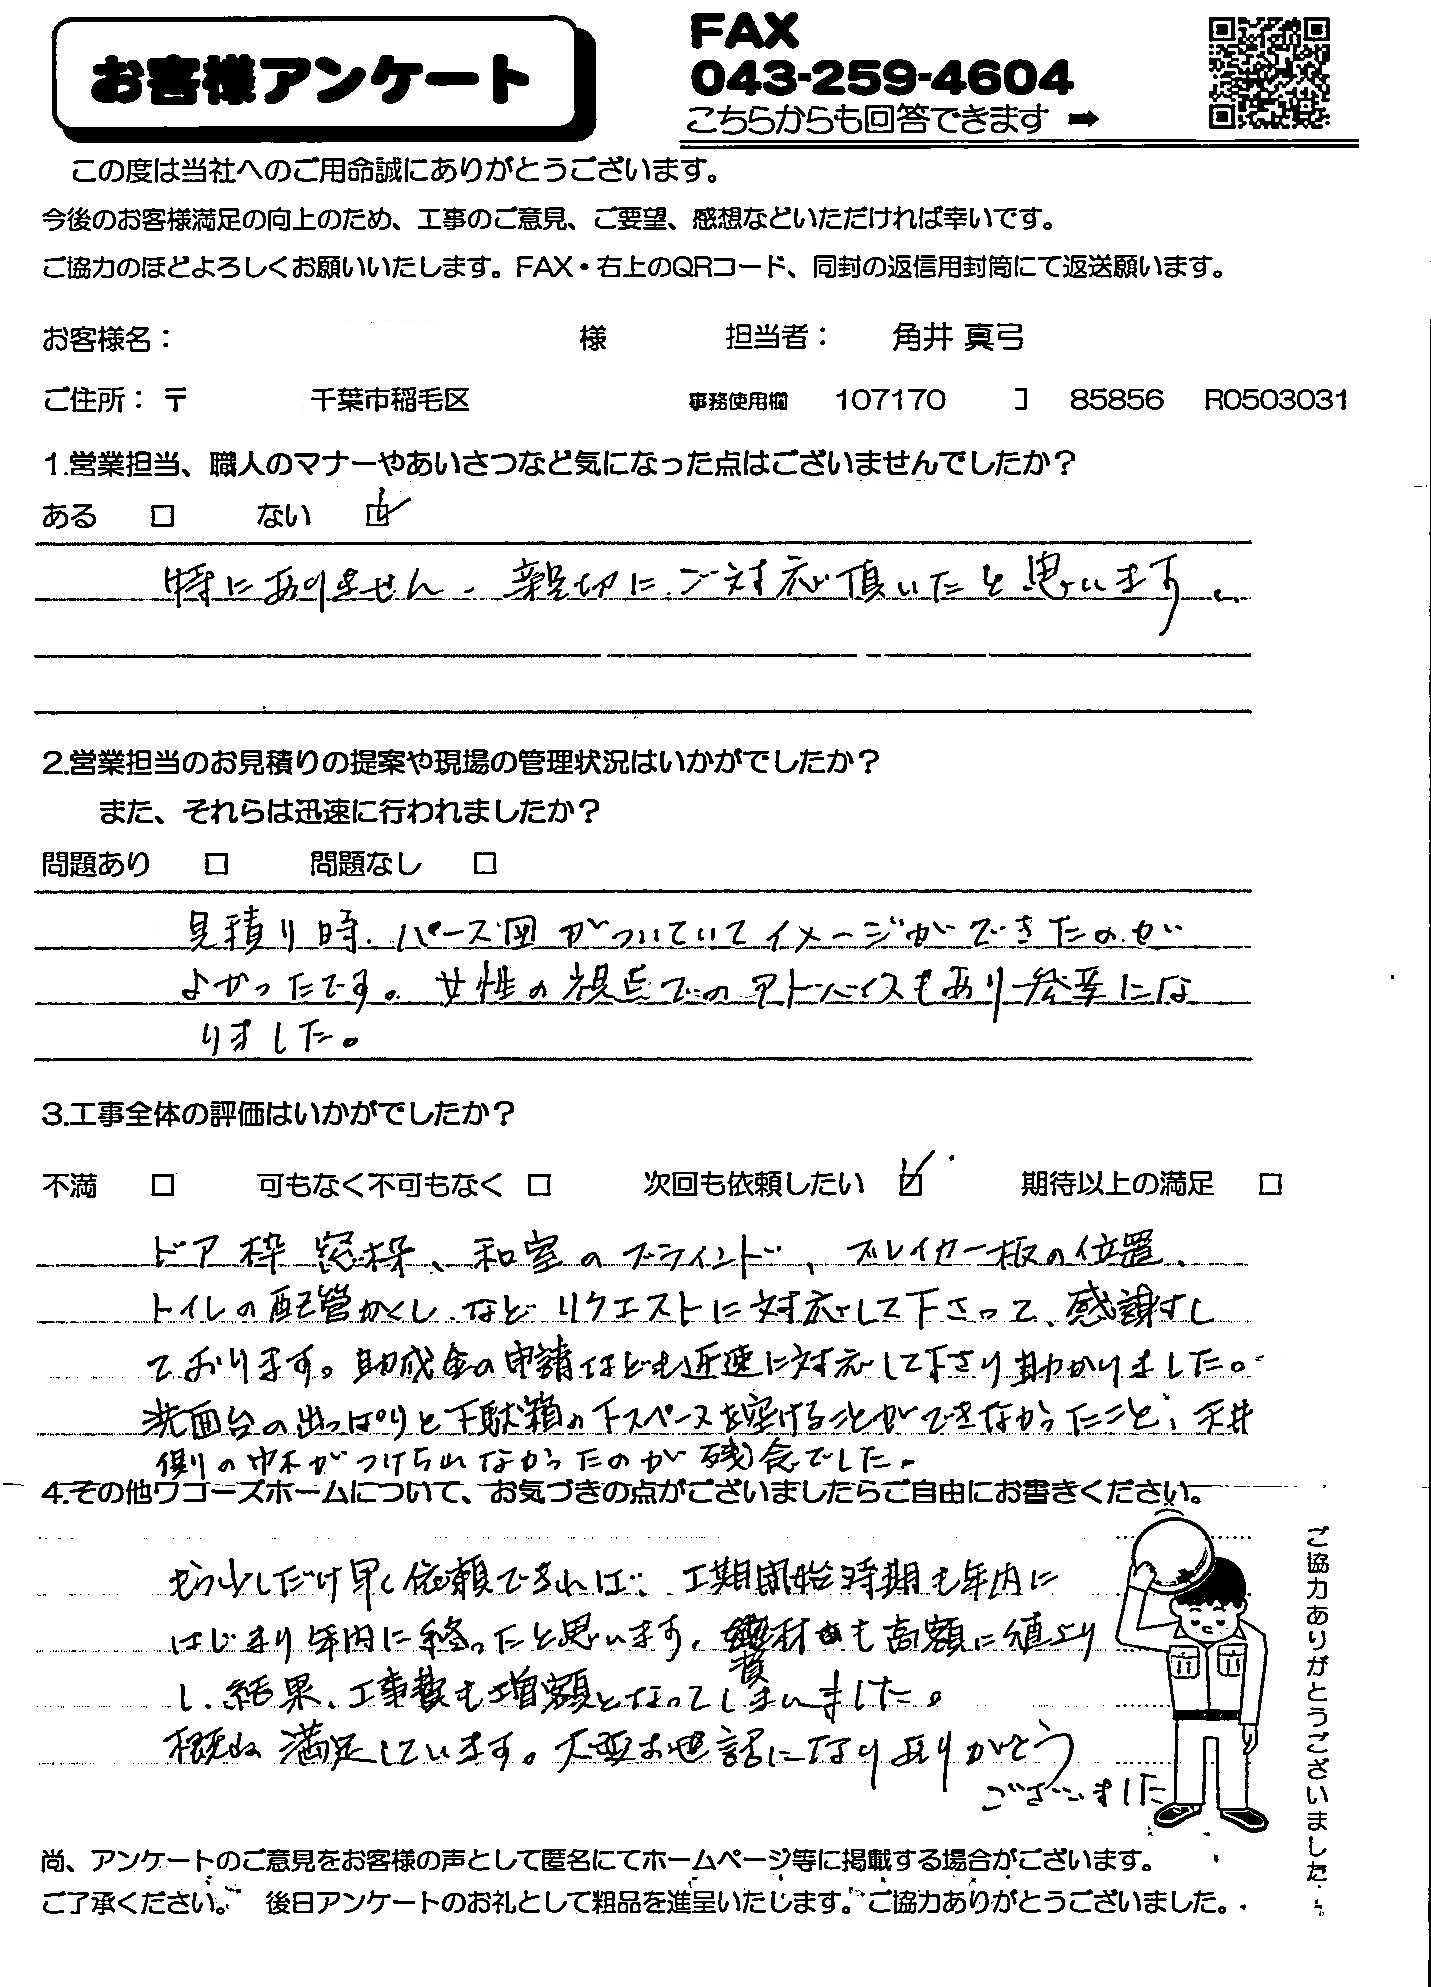 お客様アンケート
FAX
043-259-4604
こちらからも回答できます ➡
この度は当社へのご用命誠にありがとうございます。
今後のお客様満足の向上のため、工事のご意見、ご要望、感想などいただければ幸いです。
ご協力のほどよろしくお願いいたします。FAX・右上のQRコード、同封の返信用封筒にて返送願います。
お客様名： 様 担当者： 角井 真弓
ご住所：〒 千葉市稲毛区 事務使用欄 107170 コ 85856 R0503031
1.営業担当、職人のマナーやあいさつなど気になった点はございませんでしたか？
ある □ ない ☑
特にありません。親切にご対応頂いたと思います。
2.営業担当のお見積りの提案や現場の管理状況はいかがでしたか？
また、それらは迅速に行われましたか？
問題あり □ 問題なし □
見積り時、パース図がついていてイメージができたのが
よかったです。女性の視点でのアドバイスもあり参考にな
りました。
3.工事全体の評価はいかがでしたか？
不満 □ 可もなく不可もなく □ 次回も依頼したい ☑ 期待以上の満足 □
ドア枠 窓枠、和室のブラインド、ブレイカー板の位置、
トイレの配管かくし、などリクエストに対応して下さって、感謝し
ております。助成金の申請なども迅速に対応して下さり助かりました。
洗面台の出っぱりと下駄箱の下スペースを空けることができなかったこと、天井
側の巾木がつけられなかったのが残念でした。
4.その他ワゴーズホームについて、お気づきの点がございましたらご自由にお書きください。
もう少しだけ早く依頼できれば、工期開始時期も年内に
はじまり年内に終ったと思います。資材も高額に値上り
し、結果、工事費も増額となってしまいました。
概ね満足しています。大変お世話になりありがとう
ございました
ご協力ありがとうございました
尚、アンケートのご意見をお客様の声として匿名にてホームページ等に掲載する場合がございます。
ご了承ください。 後日アンケートのお礼として粗品を進呈いたします。ご協力ありがとうございました。